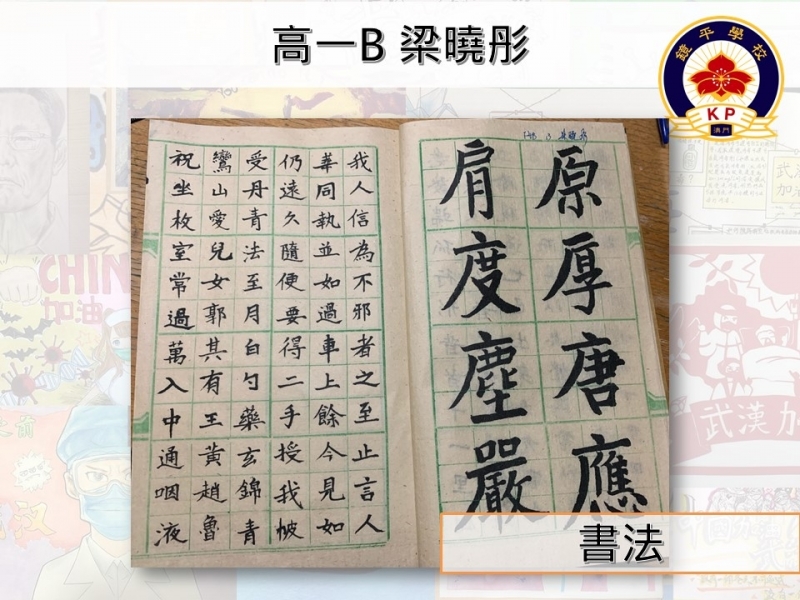 高一B 梁曉彤
鏡平學校
KP
澳門
原厚唐應
肩度塵嚴
我人信為不邪者之至止言人
同執並如過車上餘今見如
仍遠久隨便要得二手授我帔
受丹青法至月白勺藥玄錦青
鸞山愛兒女郭其有王黃趙魯
祝坐枚室常過萬入中通咽液
書法
CHIN
加油
武漢
加油
武漢加